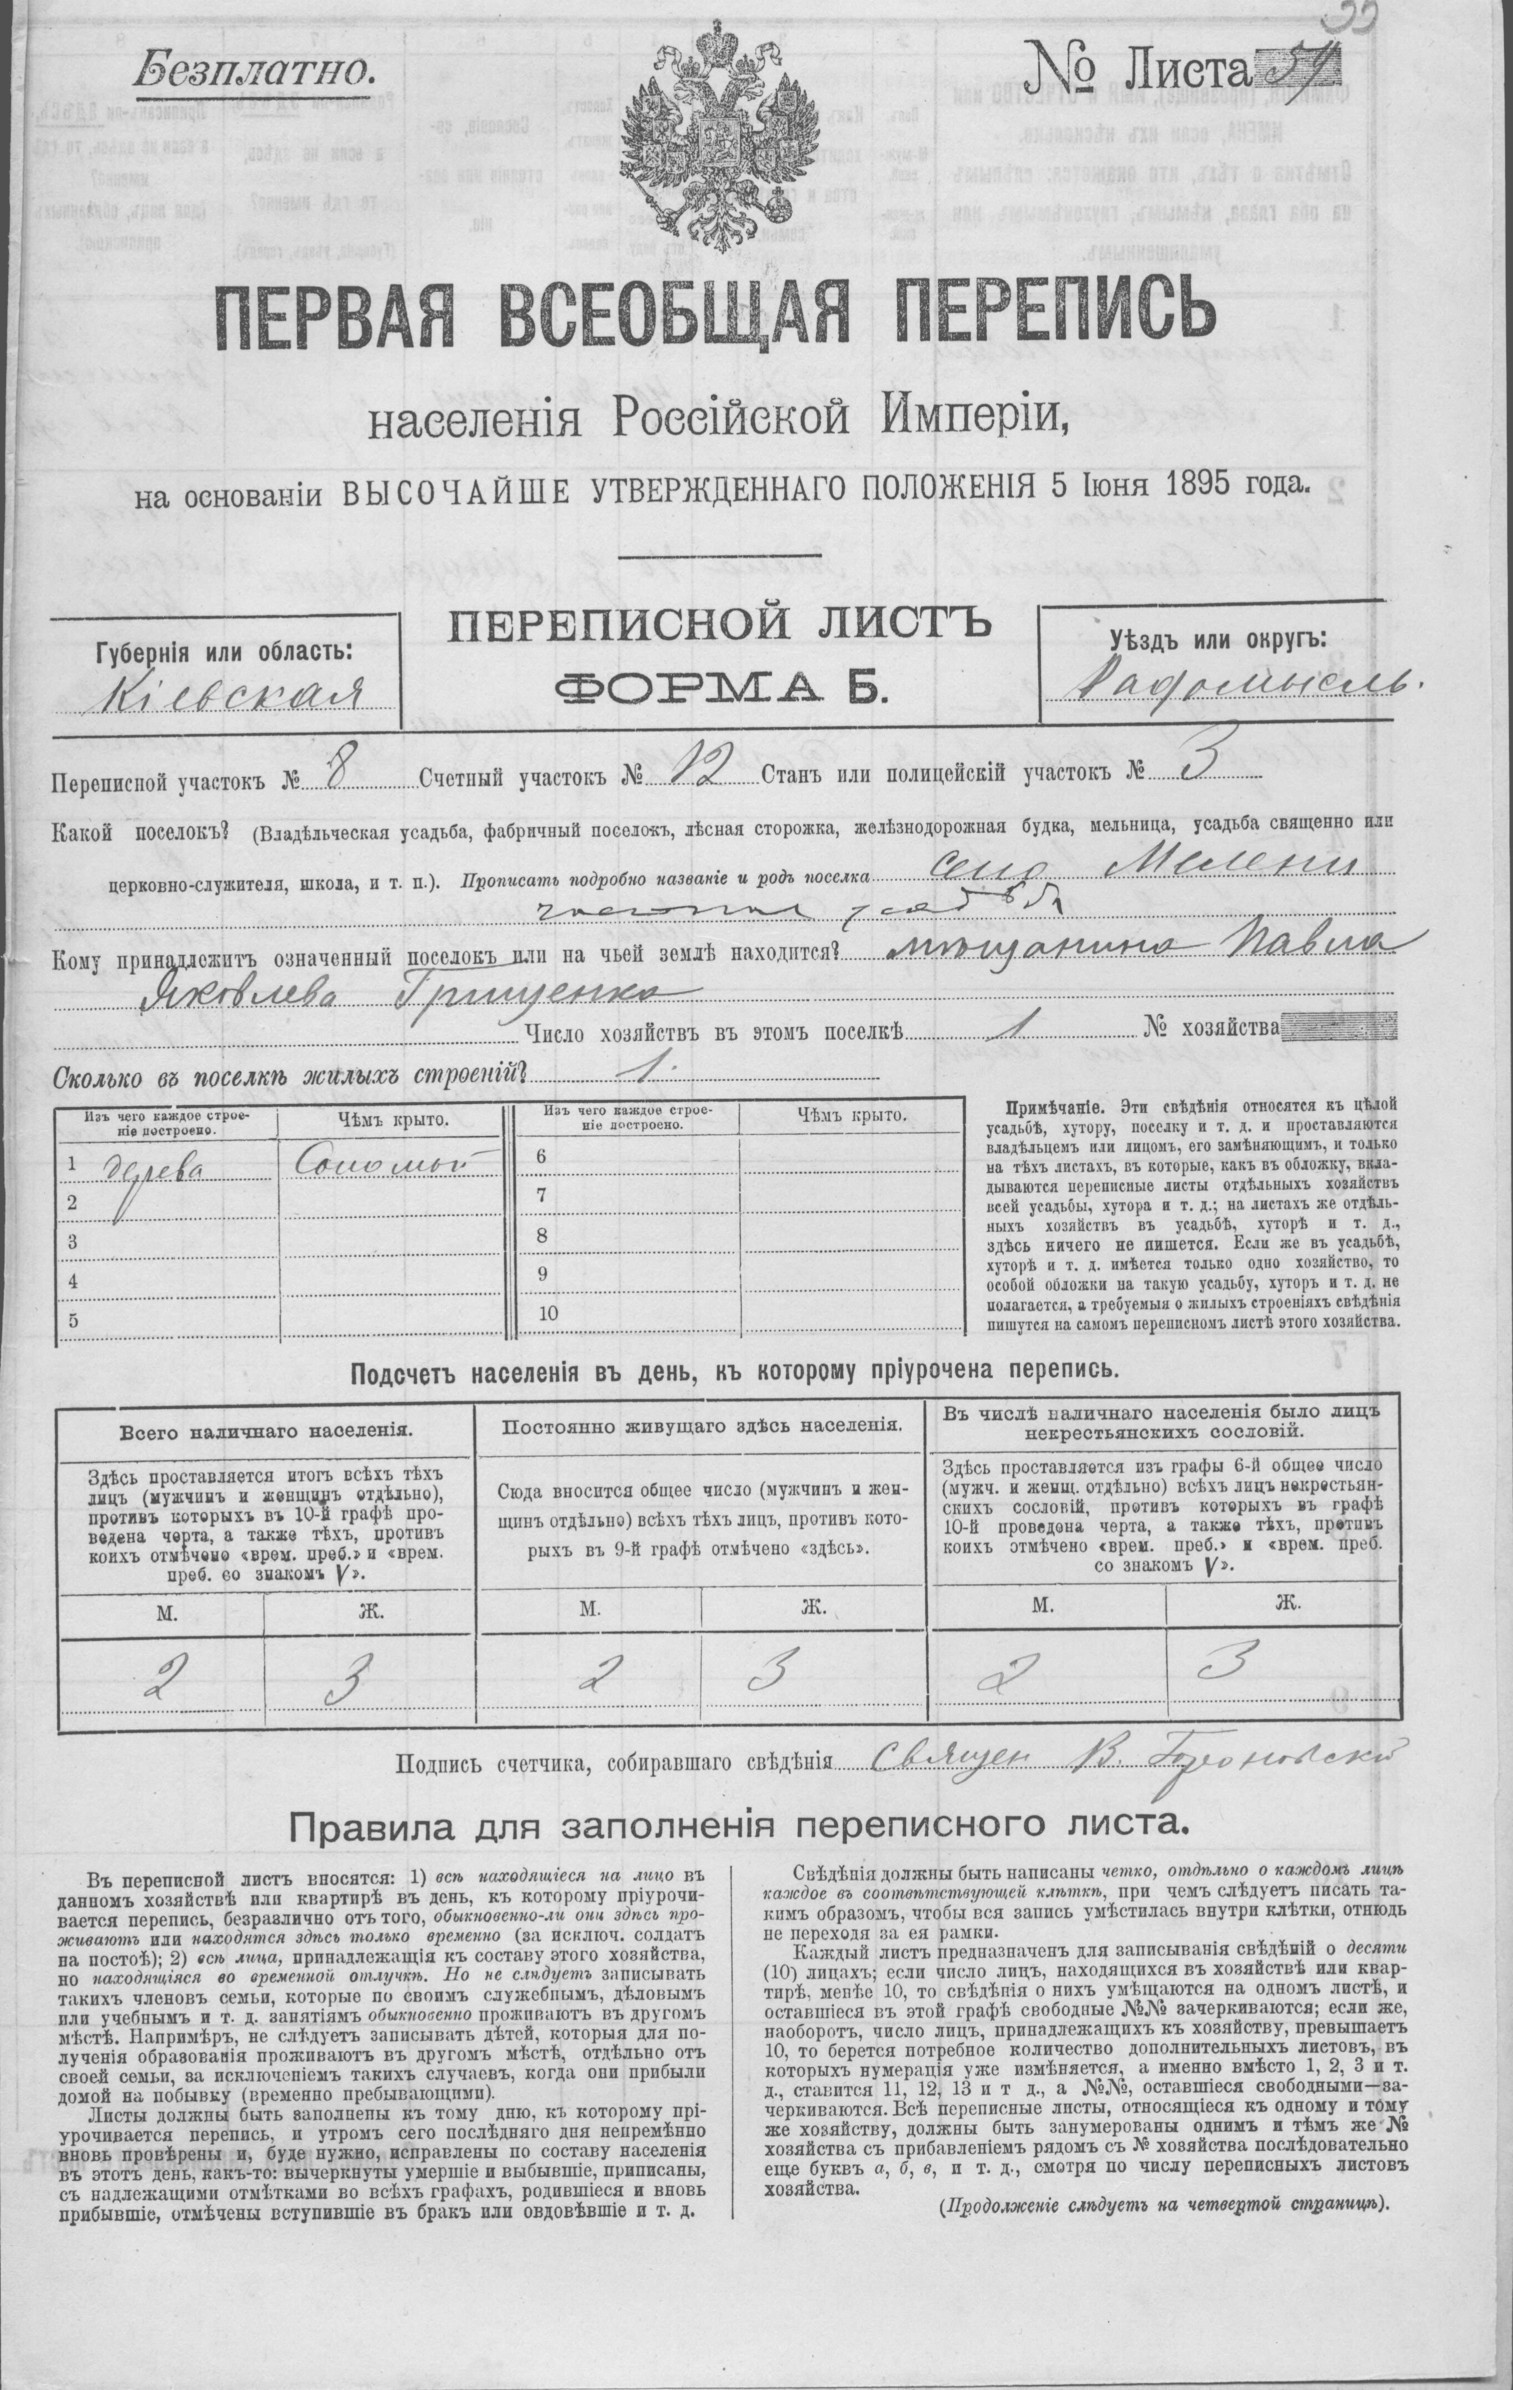 55
Безплатно.
№ Листа 54
ПЕРВАЯ ВСЕОБЩАЯ ПЕРЕПИСЬ
населенія Россійской Имперіи,
на основаніи ВЫСОЧАЙШЕ УТВЕРЖДЕННАГО ПОЛОЖЕНІЯ 5 Іюня 1895 года.
ПЕРЕПИСНОЙ ЛИСТЪ
ФОРМА Б.
Губернія или область:
Кіевская
Уѣздъ или округъ:
Радомысль.
Переписной участокъ № 8 Счетный участокъ № 12 Станъ или полицейскій участокъ № 3
Какой поселокъ? (Владѣльческая усадьба, фабричный поселокъ, лѣсная сторожка, желѣзнодорожная будка, мельница, усадьба священно или
церковно-служителя, школа, и т. п.). Прописать подробно названіе и родъ поселка село Мелени
Кому принадлежитъ означенный поселокъ или на чьей землѣ находится? мѣщанина Павла
Яковлева Грищенко
Число хозяйствъ въ этомъ поселкѣ 1 № хозяйства
Сколько въ поселкѣ жилыхъ строеній? 1.
Изъ чего каждое строе-
ніе построено.
Чѣмъ крыто.
Изъ чего каждое строе-
ніе построено.
Чѣмъ крыто.
1 дерева Соломой 6
2 7
3 8
4 9
5 10
Примѣчаніе. Эти свѣдѣнія относятся къ цѣлой
усадьбѣ, хутору, поселку и т. д. и проставляются
владѣльцемъ или лицомъ, его замѣняющимъ, и только
на тѣхъ листахъ, въ которые, какъ въ обложку, вкла-
дываются переписные листы отдѣльныхъ хозяйствъ
всей усадьбы, хутора и т. д.; на листахъ же отдѣль-
ныхъ хозяйствъ въ усадьбѣ, хуторѣ и т. д.,
здѣсь ничего не пишется. Если же въ усадьбѣ,
хуторѣ и т. д. имѣется только одно хозяйство, то
особой обложки на такую усадьбу, хуторъ и т. д. не
полагается, а требуемыя о жилыхъ строеніяхъ свѣдѣнія
пишутся на самомъ переписномъ листѣ этого хозяйства.
Подсчетъ населенія въ день, къ которому пріурочена перепись.
Всего наличнаго населенія.
Здѣсь проставляется итогъ всѣхъ тѣхъ
лицъ (мужчинъ и женщинъ отдѣльно),
противъ которыхъ въ 10-й графѣ про-
ведена черта, а также тѣхъ, противъ
коихъ отмѣчено «врем. преб.» и «врем.
преб. со знакомъ V».
М. Ж.
2 3
Постоянно живущаго здѣсь населенія.
Сюда вносится общее число (мужчинъ и жен-
щинъ отдѣльно) всѣхъ тѣхъ лицъ, противъ кото-
рыхъ въ 9-й графѣ отмѣчено «здѣсь».
М. Ж.
2 3
Въ числѣ наличнаго населенія было лицъ
некрестьянскихъ сословій.
Здѣсь проставляется изъ графы 6-й общее число
(мужч. и женщ. отдѣльно) всѣхъ лицъ некрестьян-
скихъ сословій, противъ которыхъ въ графѣ
10-й проведена черта, а также тѣхъ, противъ
коихъ отмѣчено «врем. преб.» и «врем. преб.
со знакомъ V».
М. Ж.
2 3
Подпись счетчика, собиравшаго свѣдѣнія Священ В.
Правила для заполненія переписного листа.
Въ переписной листъ вносятся: 1) всѣ находящіеся на лицо въ
данномъ хозяйствѣ или квартирѣ въ день, къ которому пріурочи-
вается перепись, безразлично отъ того, обыкновенно-ли они здѣсь про-
живаютъ или находятся здѣсь только временно (за исключ. солдатъ
на постоѣ); 2) всѣ лица, принадлежащія къ составу этого хозяйства,
но находящіяся во временной отлучкѣ. Но не слѣдуетъ записывать
такихъ членовъ семьи, которые по своимъ служебнымъ, дѣловымъ
или учебнымъ и т. д. занятіямъ обыкновенно проживаютъ въ другомъ
мѣстѣ. Напримѣръ, не слѣдуетъ записывать дѣтей, которыя для по-
лученія образованія проживаютъ въ другомъ мѣстѣ, отдѣльно отъ
своей семьи, за исключеніемъ такихъ случаевъ, когда они прибыли
домой на побывку (временно пребывающими).
Листы должны быть заполнены къ тому дню, къ которому прі-
урочивается перепись, и утромъ сего послѣдняго дня непремѣнно
вновь провѣрены и, буде нужно, исправлены по составу населенія
въ этотъ день, какъ-то: вычеркнуты умершіе и выбывшіе, приписаны,
съ надлежащими отмѣтками во всѣхъ графахъ, родившіеся и вновь
прибывшіе, отмѣчены вступившіе въ бракъ или овдовѣвшіе и т. д.
Свѣдѣнія должны быть написаны четко, отдѣльно о каждомъ лицѣ
каждое въ соотвѣтствующей клѣткѣ, при чемъ слѣдуетъ писать та-
кимъ образомъ, чтобы вся запись умѣстилась внутри клѣтки, отнюдь
не переходя за ея рамки.
Каждый листъ предназначенъ для записыванія свѣдѣній о десяти
(10) лицахъ; если число лицъ, находящихся въ хозяйствѣ или квар-
тирѣ, менѣе 10, то свѣдѣнія о нихъ умѣщаются на одномъ листѣ, и
оставшіеся въ этой графѣ свободные №№ зачеркиваются; если же,
наоборотъ, число лицъ, принадлежащихъ къ хозяйству, превышаетъ
10, то берется потребное количество дополнительныхъ листовъ, въ
которыхъ нумерація уже измѣняется, а именно вмѣсто 1, 2, 3 и т.
д., ставится 11, 12, 13 и т д., а №№, оставшіеся свободными—за-
черкиваются. Всѣ переписные листы, относящіеся къ одному и тому
же хозяйству, должны быть занумерованы однимъ и тѣмъ же №
хозяйства съ прибавленіемъ рядомъ съ № хозяйства послѣдовательно
еще буквъ а, б, в, и т. д., смотря по числу переписныхъ листовъ
хозяйства.
(Продолженіе слѣдуетъ на четвертой страницѣ).